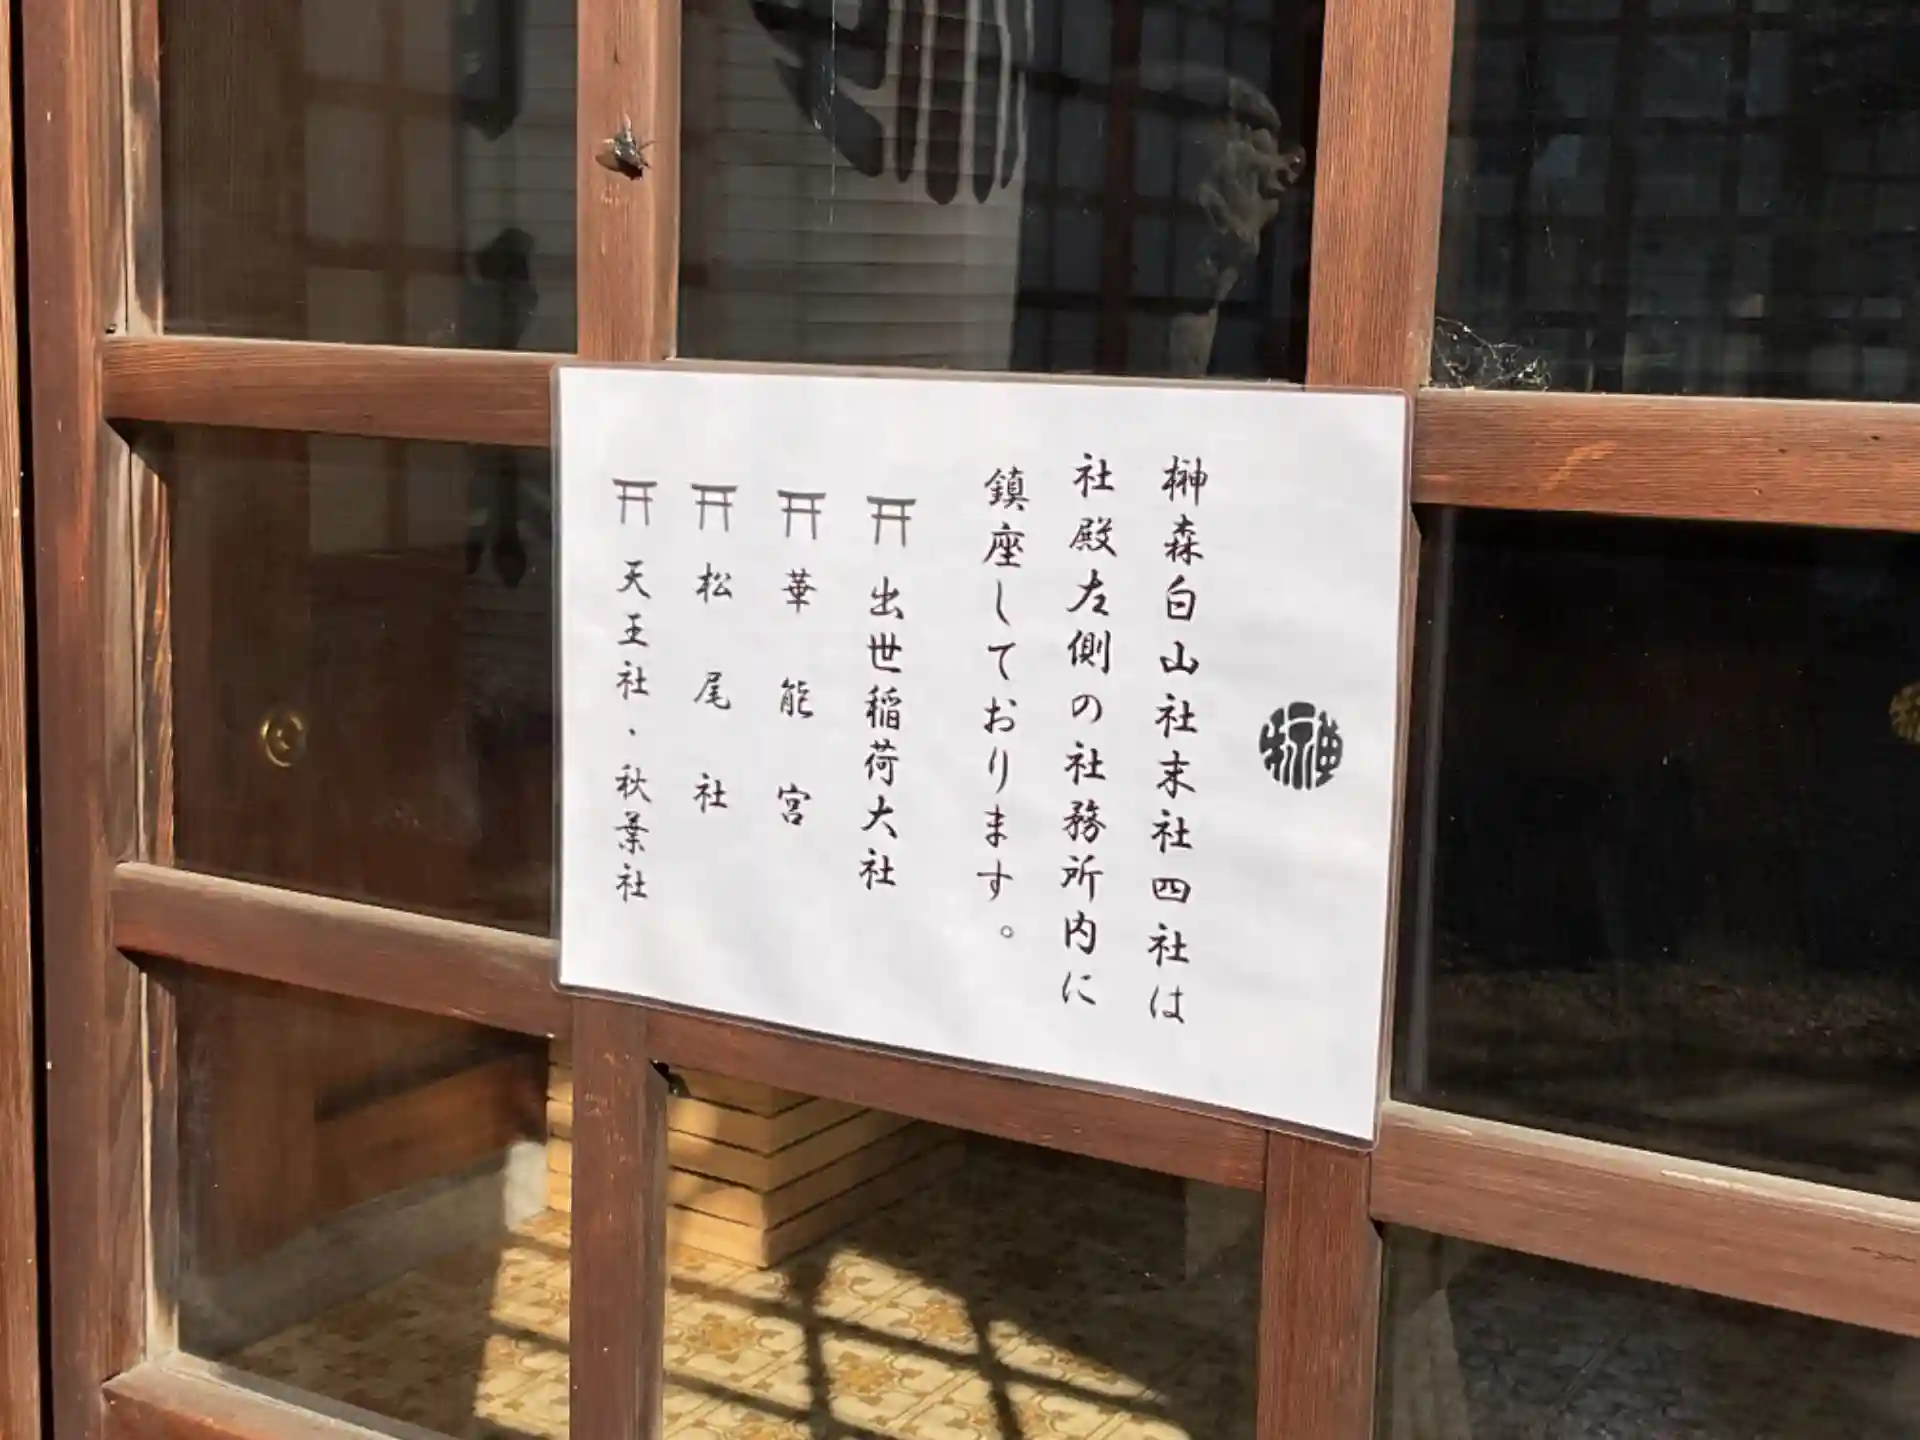 榊森白山社末社四社は
社殿左側の社務所内に
鎮座しております。
出世稲荷大社
華能宮
松尾社
天王社・秋葉社